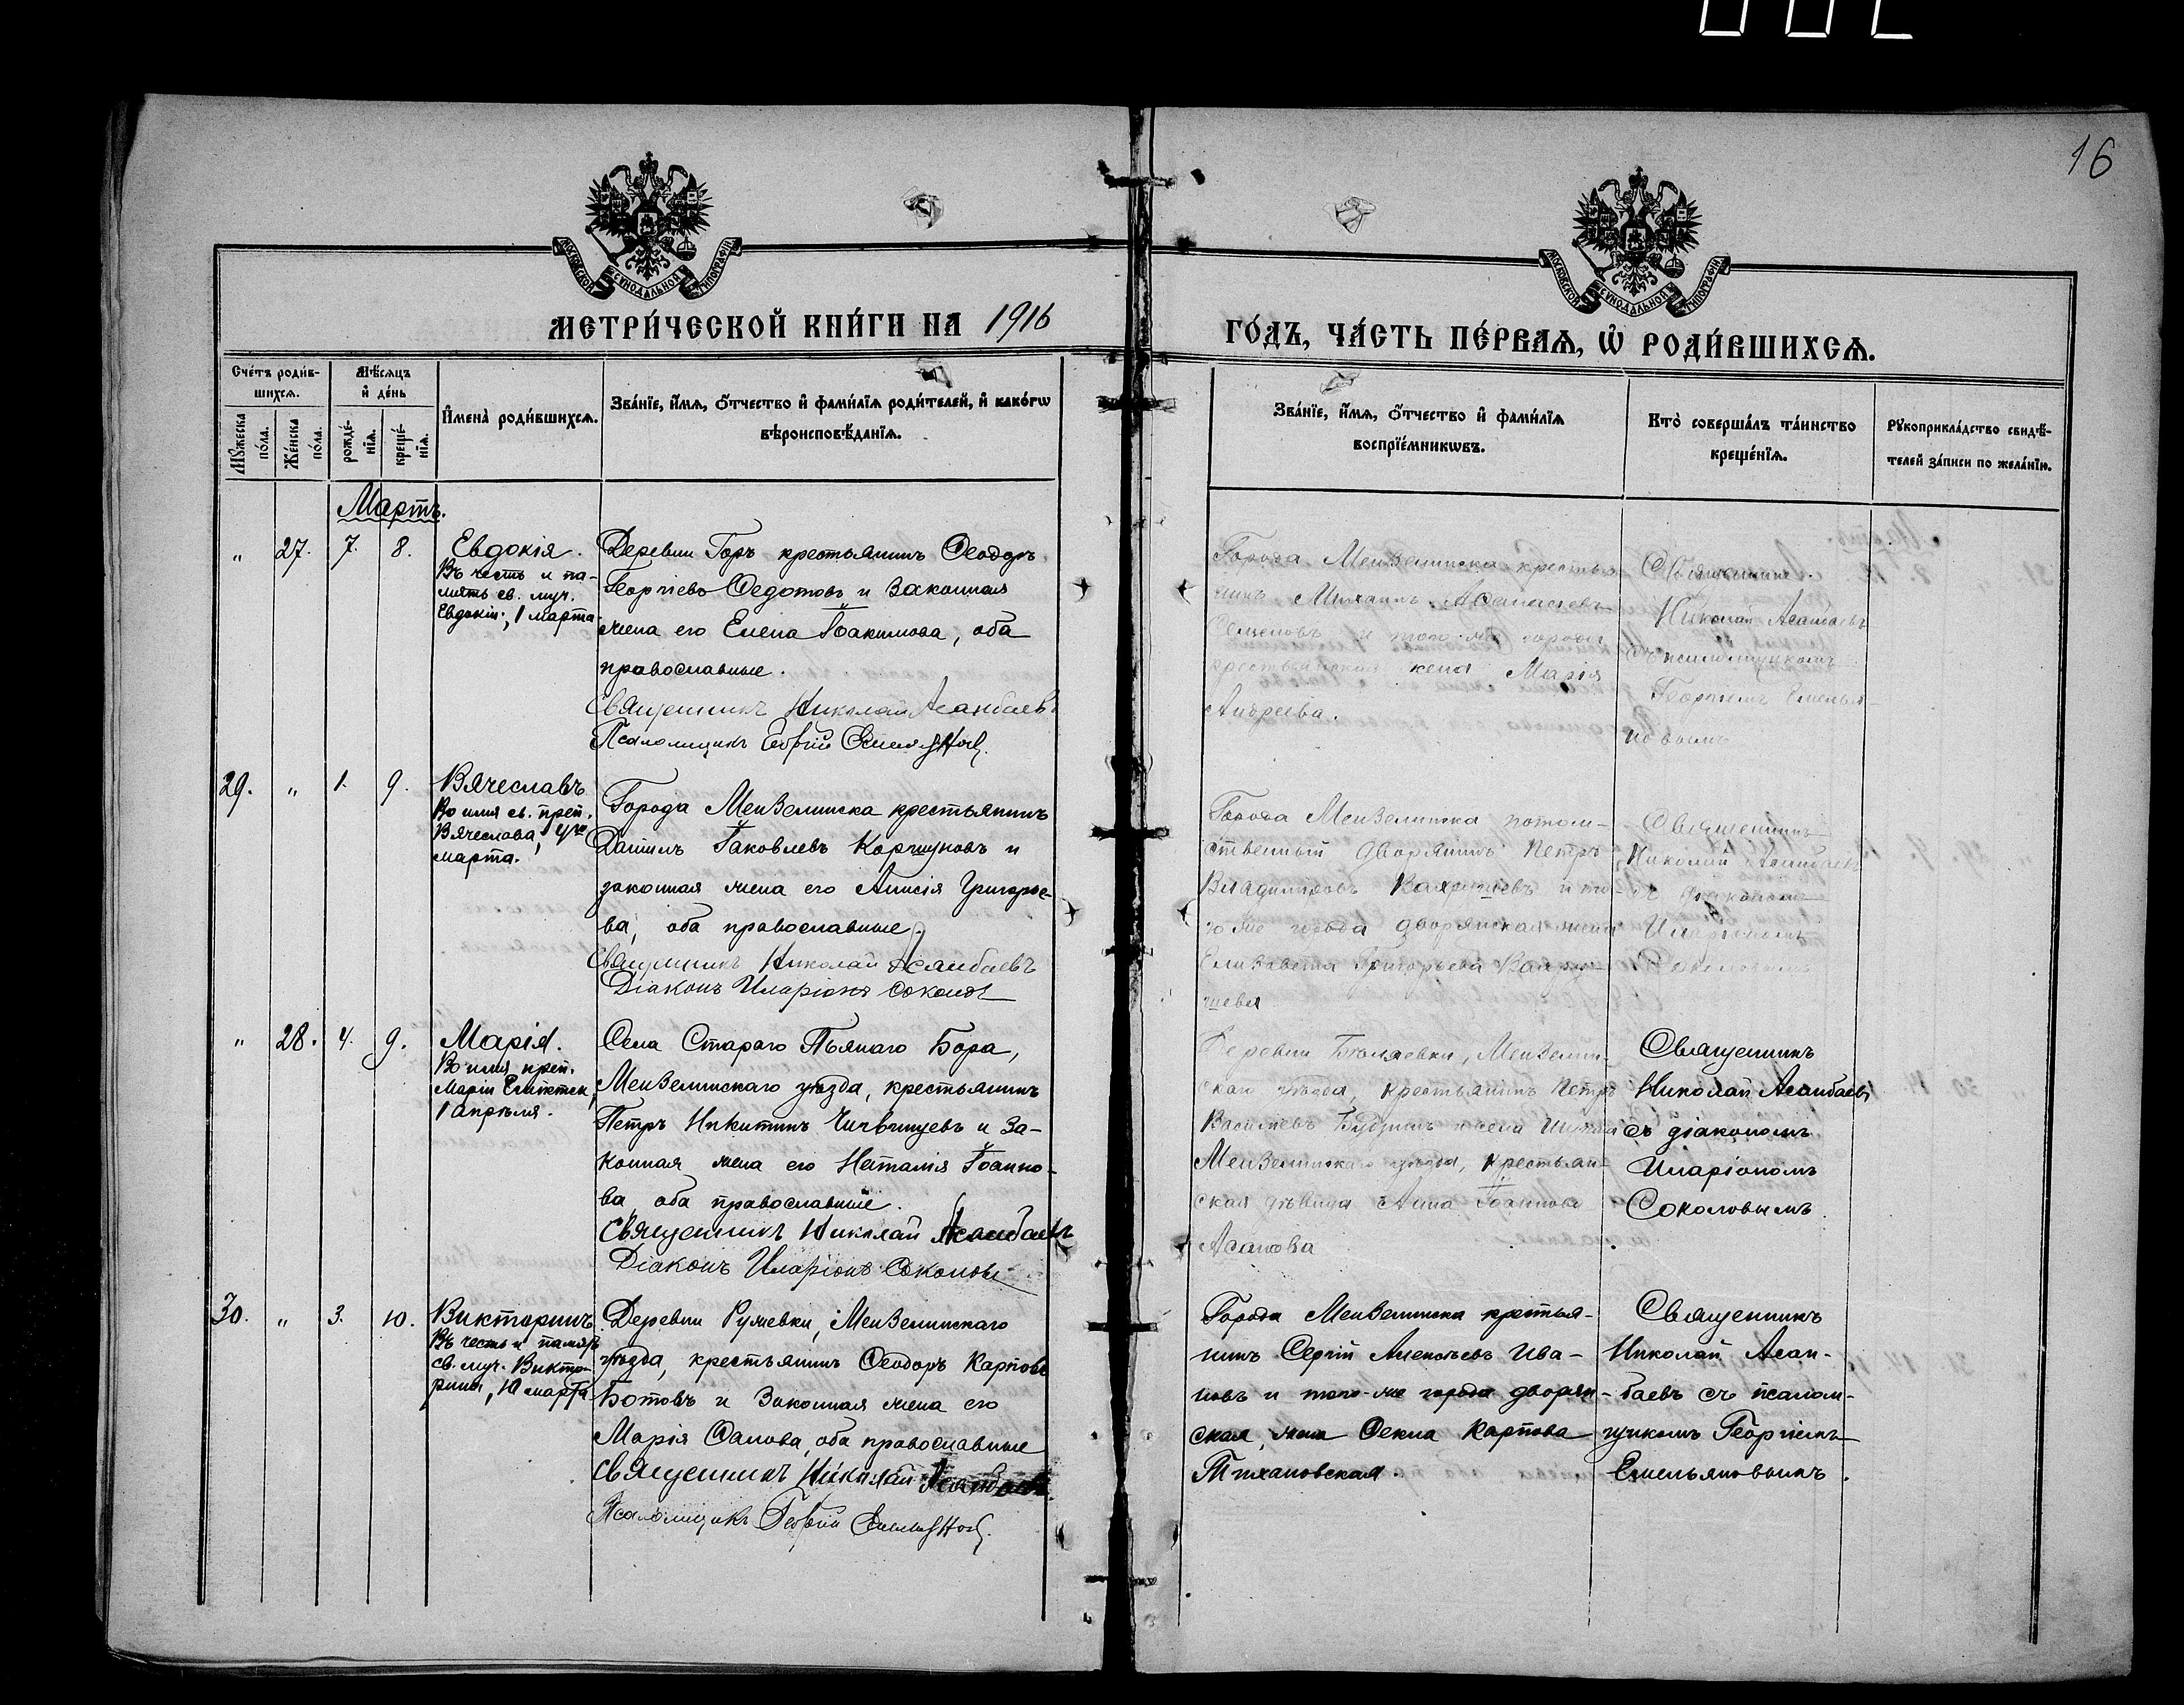 16
МОСКОВСКОЙ СѴНОДАЛЬНОЙ ТИПОГРАФІИ
МОСКОВСКОЙ СѴНОДАЛЬНОЙ ТИПОГРАФІИ
МЕТРИ́ЧЕСКОЙ КНИ́ГИ НА 1916
ГО́ДЪ, ЧА́СТЬ ПЕ́РВАѦ, Ѡ҆ РОДИ́ВШИХСѦ.
Сче́тъ роди́в-
шихсѧ.
Мꙋ́жеска
по́ла.
Же́нска
по́ла.
Мѣ́сѧцъ
и҆ де́нь
рожде́-
нїѧ.
креще́-
нїѧ.
И҆мена̀ роди́вшихсѧ.
Зва́нїе, и҆́мѧ, ѻ҆́тчество и҆ фами́лїѧ роди́телей, и҆ како́гѡ
вѣроисповѣ́данїѧ.
Зва́нїе, и҆́мѧ, ѻ҆́тчество и҆ фами́лїѧ
воспрїе́мникѡвъ.
Кто̀ соверша́лъ та́инство
креще́нїѧ.
Рꙋкоприкла́дство свидѣ́-
телей за́писи по жела́нїю.
Мартъ.
„ 27. 7. 8.
Евдокія.
Въ честь и па-
мять св. муч.
Евдокіи, 1 марта
Деревни Горъ крестьянинъ Ѳеодоръ
Георгіевъ Ѳедотовъ и законная
жена его Елена Іоакимова, оба
православные.
Священникъ Николай Асанбаевъ
Псаломщикъ Георгій
Города Мензелинска крестья-
нинъ Михаилъ Аѳанасьевъ
Семеновъ и того-же города
крестьянская жена Марія
Андреева.
Священникъ
Николай Асанбаевъ
съ псаломщикомъ
Георгіемъ Емелья-
новымъ
29. „ 1. 9.
Вячеславъ
Во имя св. преп.
Вячеслава, 4го
марта.
Города Мензелинска крестьянинъ
Даніилъ Іаковлевъ Коршуновъ и
законная жена его Анисія Григорье-
ва, оба православные.
Священникъ Николай Асанбаевъ
Діаконъ Иларіонъ Соколов
Города Мензелинска потом-
ственный дворянинъ Петръ
Владиміровъ и то-
го-же города дворянская жена
Елизавета Григорьева
шева
Священникъ
Николай Асанбаевъ
съ діакономъ
Иларіономъ
Соколовымъ
„ 28. 4. 9.
Марія.
Во имя преп.
Маріи Египетск,
1 апрѣля.
Села Стараго Пьянаго Бора,
Мензелинскаго уѣзда, крестьянинъ
Петръ Никитинъ и за-
конная жена его Наталія Іоанно-
ва, оба православные.
Священникъ Николай Асанбаевъ
Діаконъ Иларіонъ Соколовъ
Деревни Мензелин-
скаго уѣзда, крестьянинъ Петръ
Васильевъ и села
Мензелинскаго уѣзда, крестьян-
ская дѣвица Анна Іоаннова
Асанова
Священникъ
Николай Асанбаевъ
съ діакономъ
Иларіономъ
Соколовымъ.
30. „ 3. 10.
Викторинъ.
Въ честь и память
св. муч. Викто-
рина, 10 марта
Деревни Мензелинскаго
уѣзда, крестьянинъ Ѳеодоръ Карповъ
Ботовъ и законная жена его
Марія оба православные
Священникъ Николай Асанбаевъ
Псаломщикъ Георгій
Города Мензелинска крестья-
нинъ Сергій Алексѣевъ Ива-
новъ и того-же города дворян-
ская жена Ѳекла Карпова
Тихановская.
Священникъ
Николай Асан-
баевъ съ псалом-
щикомъ Георгіемъ
Емельяновымъ.